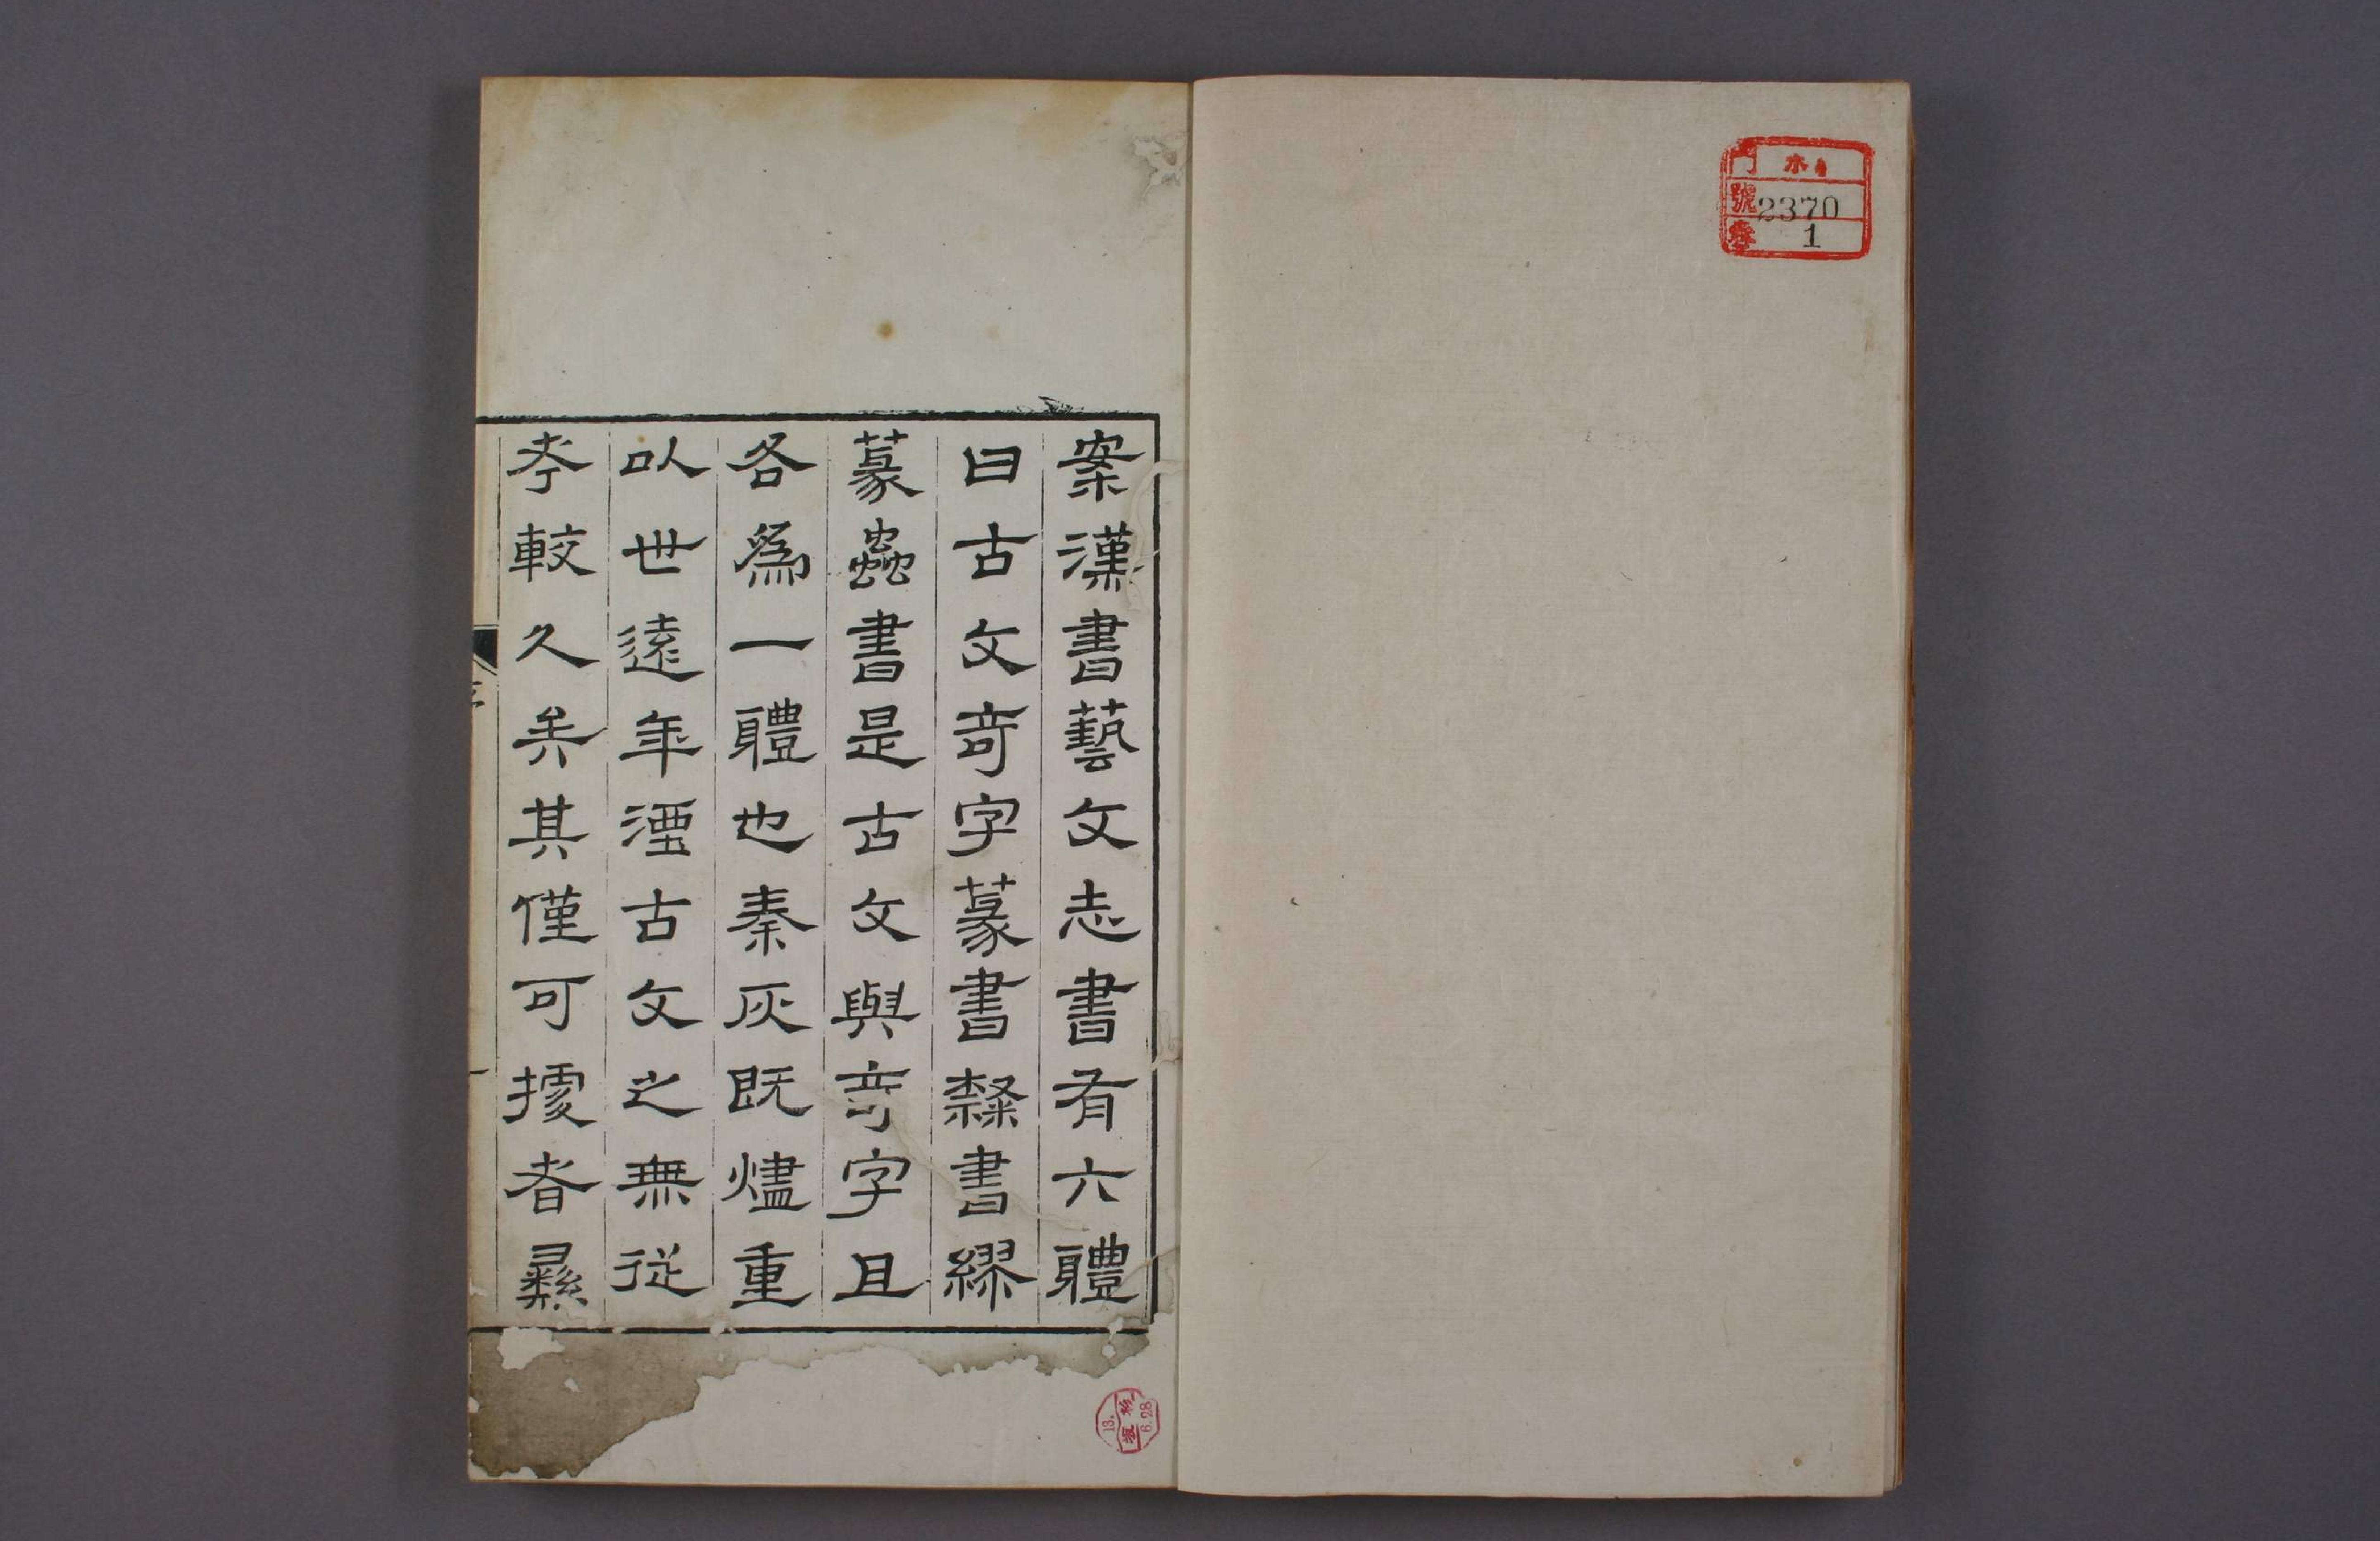 門 木
號 2370
1
案漢書藝文志書有六體
曰古文奇字篆書隸書繆
篆蟲書是古文與奇字且
各爲一體也秦灰既燼重
以世遠年湮古文之無從
考較久矣其僅可據者彝
13.
6.28